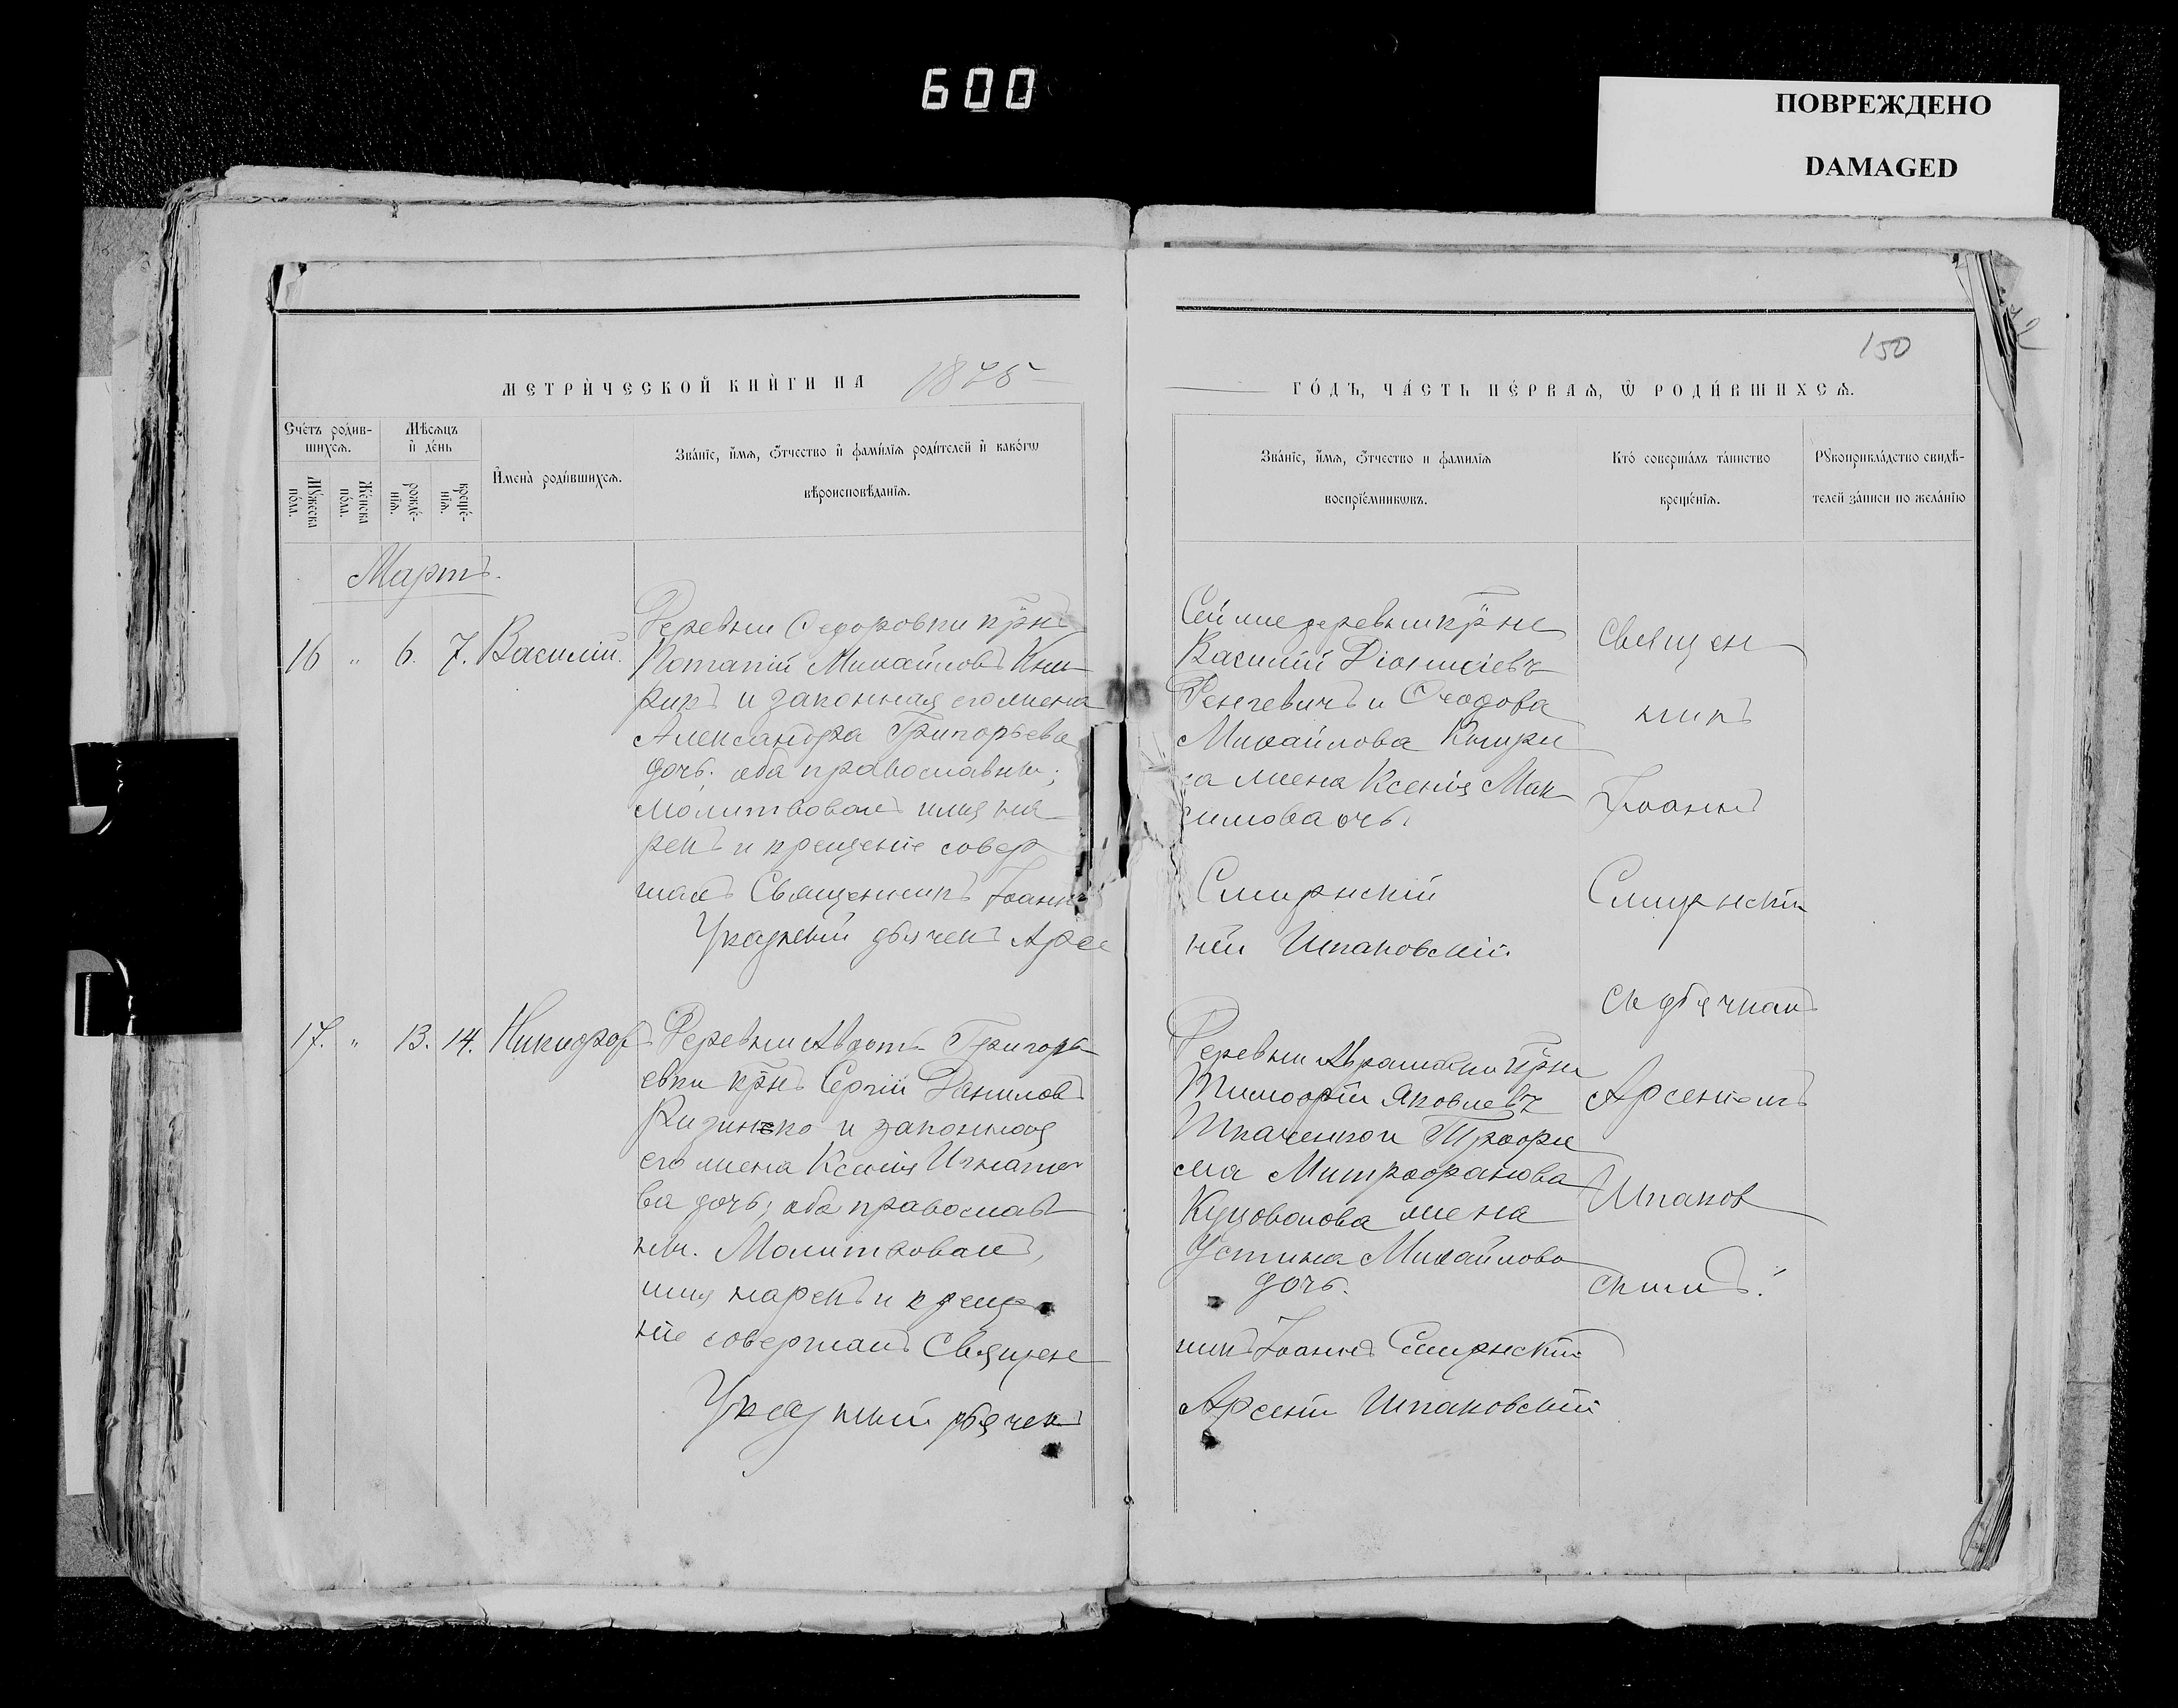 600
ПОВРЕЖДЕНО
DAMAGED
150
МЕТРИ́ЧЕСКОЙ КНИ́ГИ НА 1875
ГО́ДЪ, ЧА́СТЬ ПЕ́РВАѦ, Ѡ҆ РОДИ́ВШИХСѦ.
Сче́тъ роди́в-
шихсѧ.
Мѣ́сѧцъ
и҆ де́нь
Мꙋ́жеска
по́ла.
Же́нска
по́ла.
рожде́-
нїѧ.
креще́-
нїѧ.
И҆мена̀ роди́вшихсѧ.
Зва́нїе, и҆́мѧ, ѻ҆́тчество и҆ фами́лїѧ роди́телей и҆ како́гѡ
вѣроисповѣ́данїѧ.
Зва́нїе, и҆́мѧ, ѻ҆́тчество и фами́лїѧ
воспрїе́мникѡвъ.
Кто̀ соверша́лъ та́инство
креще́нїѧ.
Рꙋкоприкла́дство свидѣ́-
телей за́писи по жела́нїю
Мартъ.
16 " 6. 7. Василій.
Деревни Федоровки крнъ
Потапій Михайловъ Кни
рикъ и законная его жена
Александра Григорьева
дочь. оба православны;
молитвовалъ имя на
рекъ и крещеніе совер
шалъ Священникъ Іоаннъ
Указный дьячекъ Арсе
Сей же деревни крне
Василій Діонисіевъ
и Феодора
Михайлова
са жена Ксенія Мак
симова очь.
Смирнскій
ній Шпаковскій.
Священ
никъ
Іоаннъ
Смирнскій
съ дьячкомъ
Арсеніемъ
Шпаков
скимъ.
17. " 13. 14. Никифоръ
Деревни Григорь
евки крнъ Сергій Даниловъ
и законная
его жена Ксенія Игнатов
ва дочь; оба православ
ны. Молитвовалъ,
имя нарекъ и креще
ніе совершалъ Священ
Указный дьячекъ
Деревни Абрамовки крнъ
Тимофей Яковлевъ
Ткаченко и Трофи
ма Митрофанова
жена
Устина Михайлова
дочь.
никъ Іоаннъ Смирнскій
Арсеній Шпаковскій